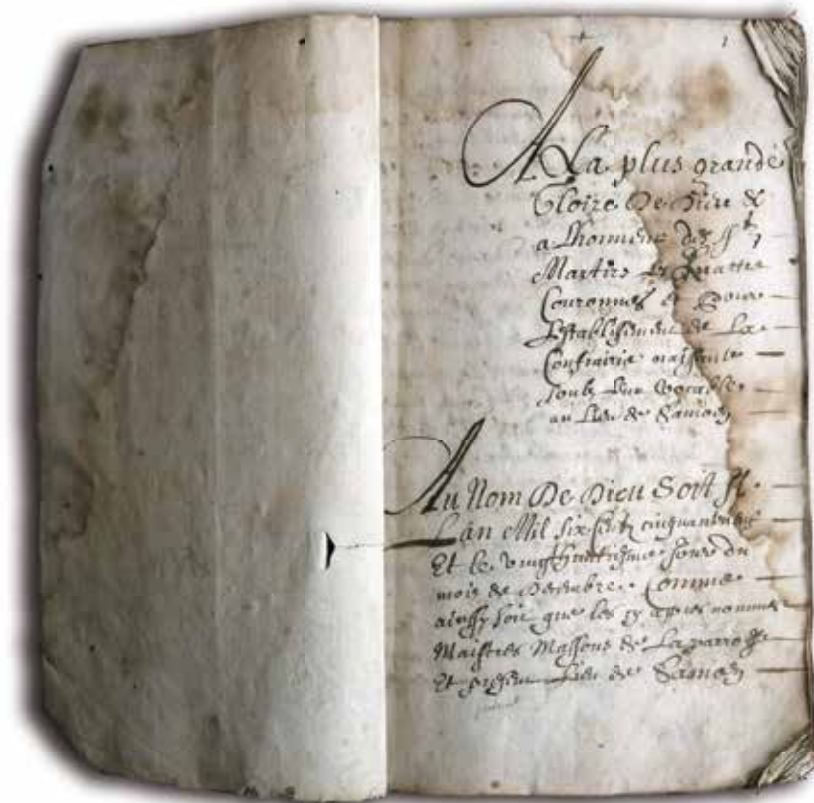 1
A La plus grande
Gloire De Dieu &
a Lhonneur des Sts
Martirs Les Quattre
Couronnes et Pour
Lestablissement de La
Confrairie naissante
soubz Leur Vocable
au Lieu de Samoen
Au Nom De Dieu Soit
Lan Mil six centz cinquante
Et le vingthuitiesme Jour du
mois de Decembre. Comme
ainssy soit que les cy apres nommes
Maistres Massons de La parroisse
Et present Lieu de Samoen